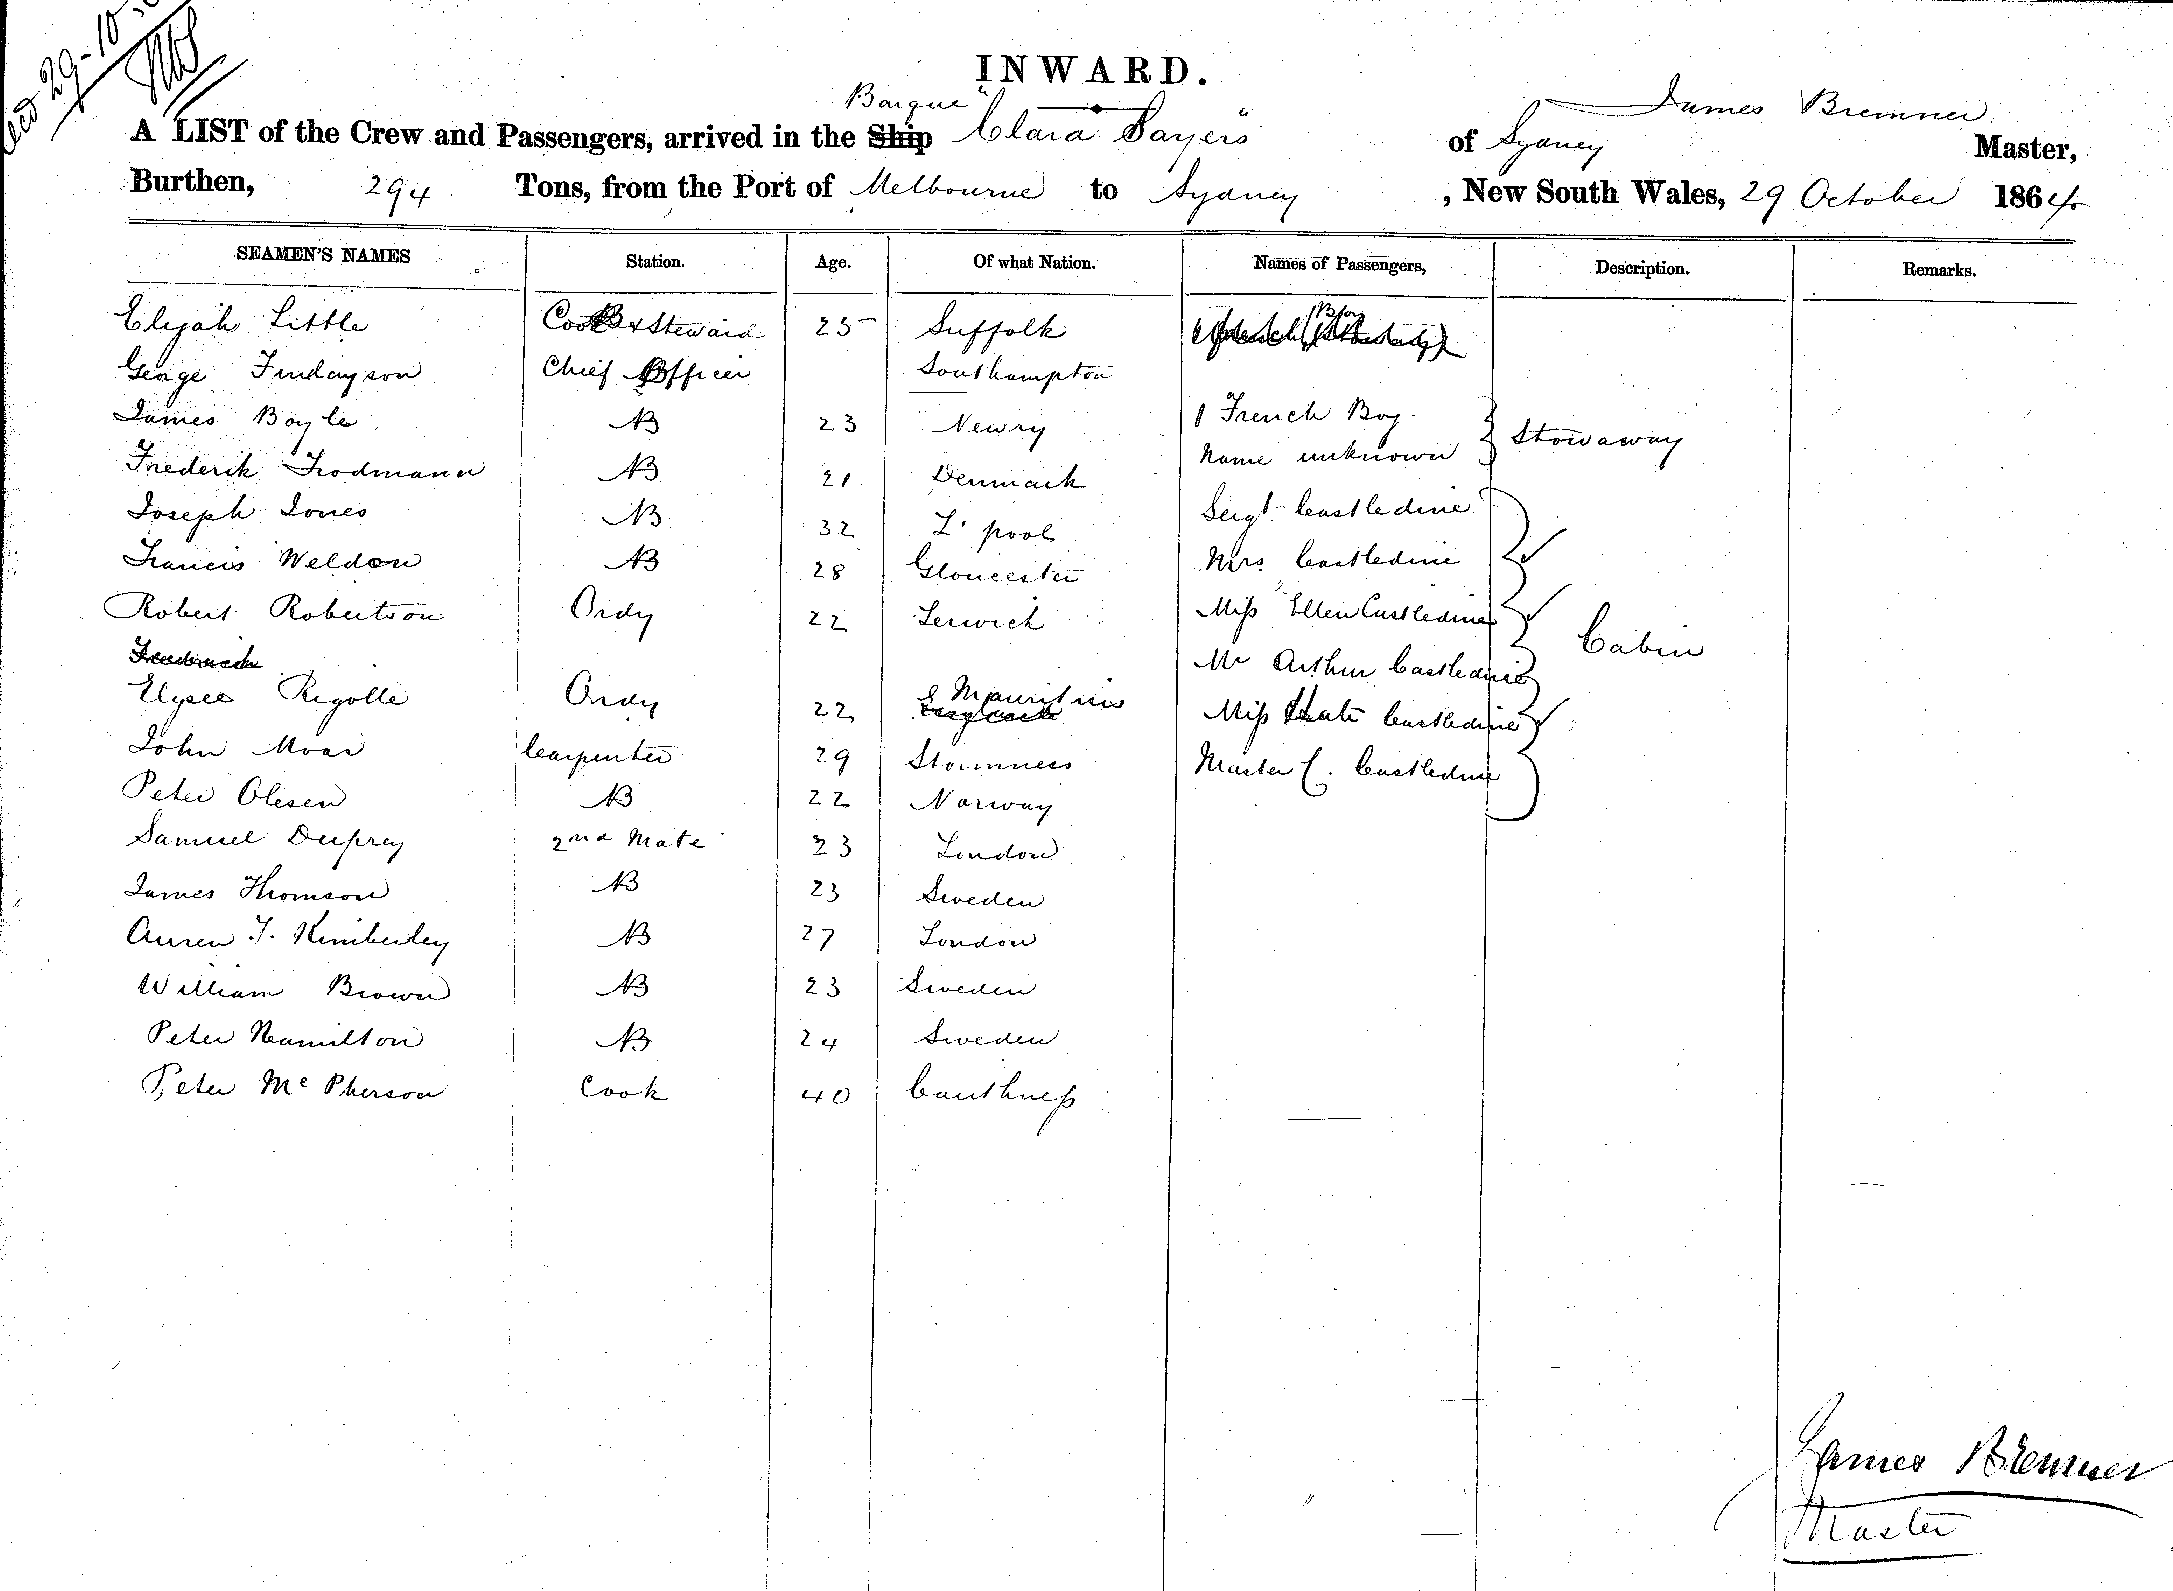 29-10
INWARD.
Barque
James Bremner
A LIST of the Crew and Passengers, arrived in the Ship "Clara Sayers" of Sydney Master,
Burthen, 294 Tons, from the Port of Melbourne to Sydney, New South Wales, 29 October 1864
SEAMEN'S NAMES Station. Age. Of what Nation. Names of Passengers, Description. Remarks.
Elijah Little Cook & Steward 25 Suffolk
George Findayson Chief Officer Southampton
James Boyle AB 23 Newry 1 French Boy
Name unknown Stowaway
Frederik Frodmann AB 21 Denmark
Joseph Jones AB 32 L'pool Sergt Castledine
Francis Weldon AB 28 Gloucester Mrs Castledine
Robert Robertson Ordy 22 Lerwick Miss Ellen Castledine Cabin
Mr Arthur Castledine
Elysee Rigolle Ordy 22 Mauritius Miss Kate Castledine
John Moar Carpenter 29 Stormness Master C. Castledine
Peter Olesen AB 22 Norway
Samuel Duprey 2nd Mate 23 London
James Thomson AB 23 Sweden
T. Kimberley AB 27 London
William Brown AB 23 Sweden
Peter Hamilton AB 24 Sweden
Peter McPherson Cook 40 Caithness
James Bremner
Master